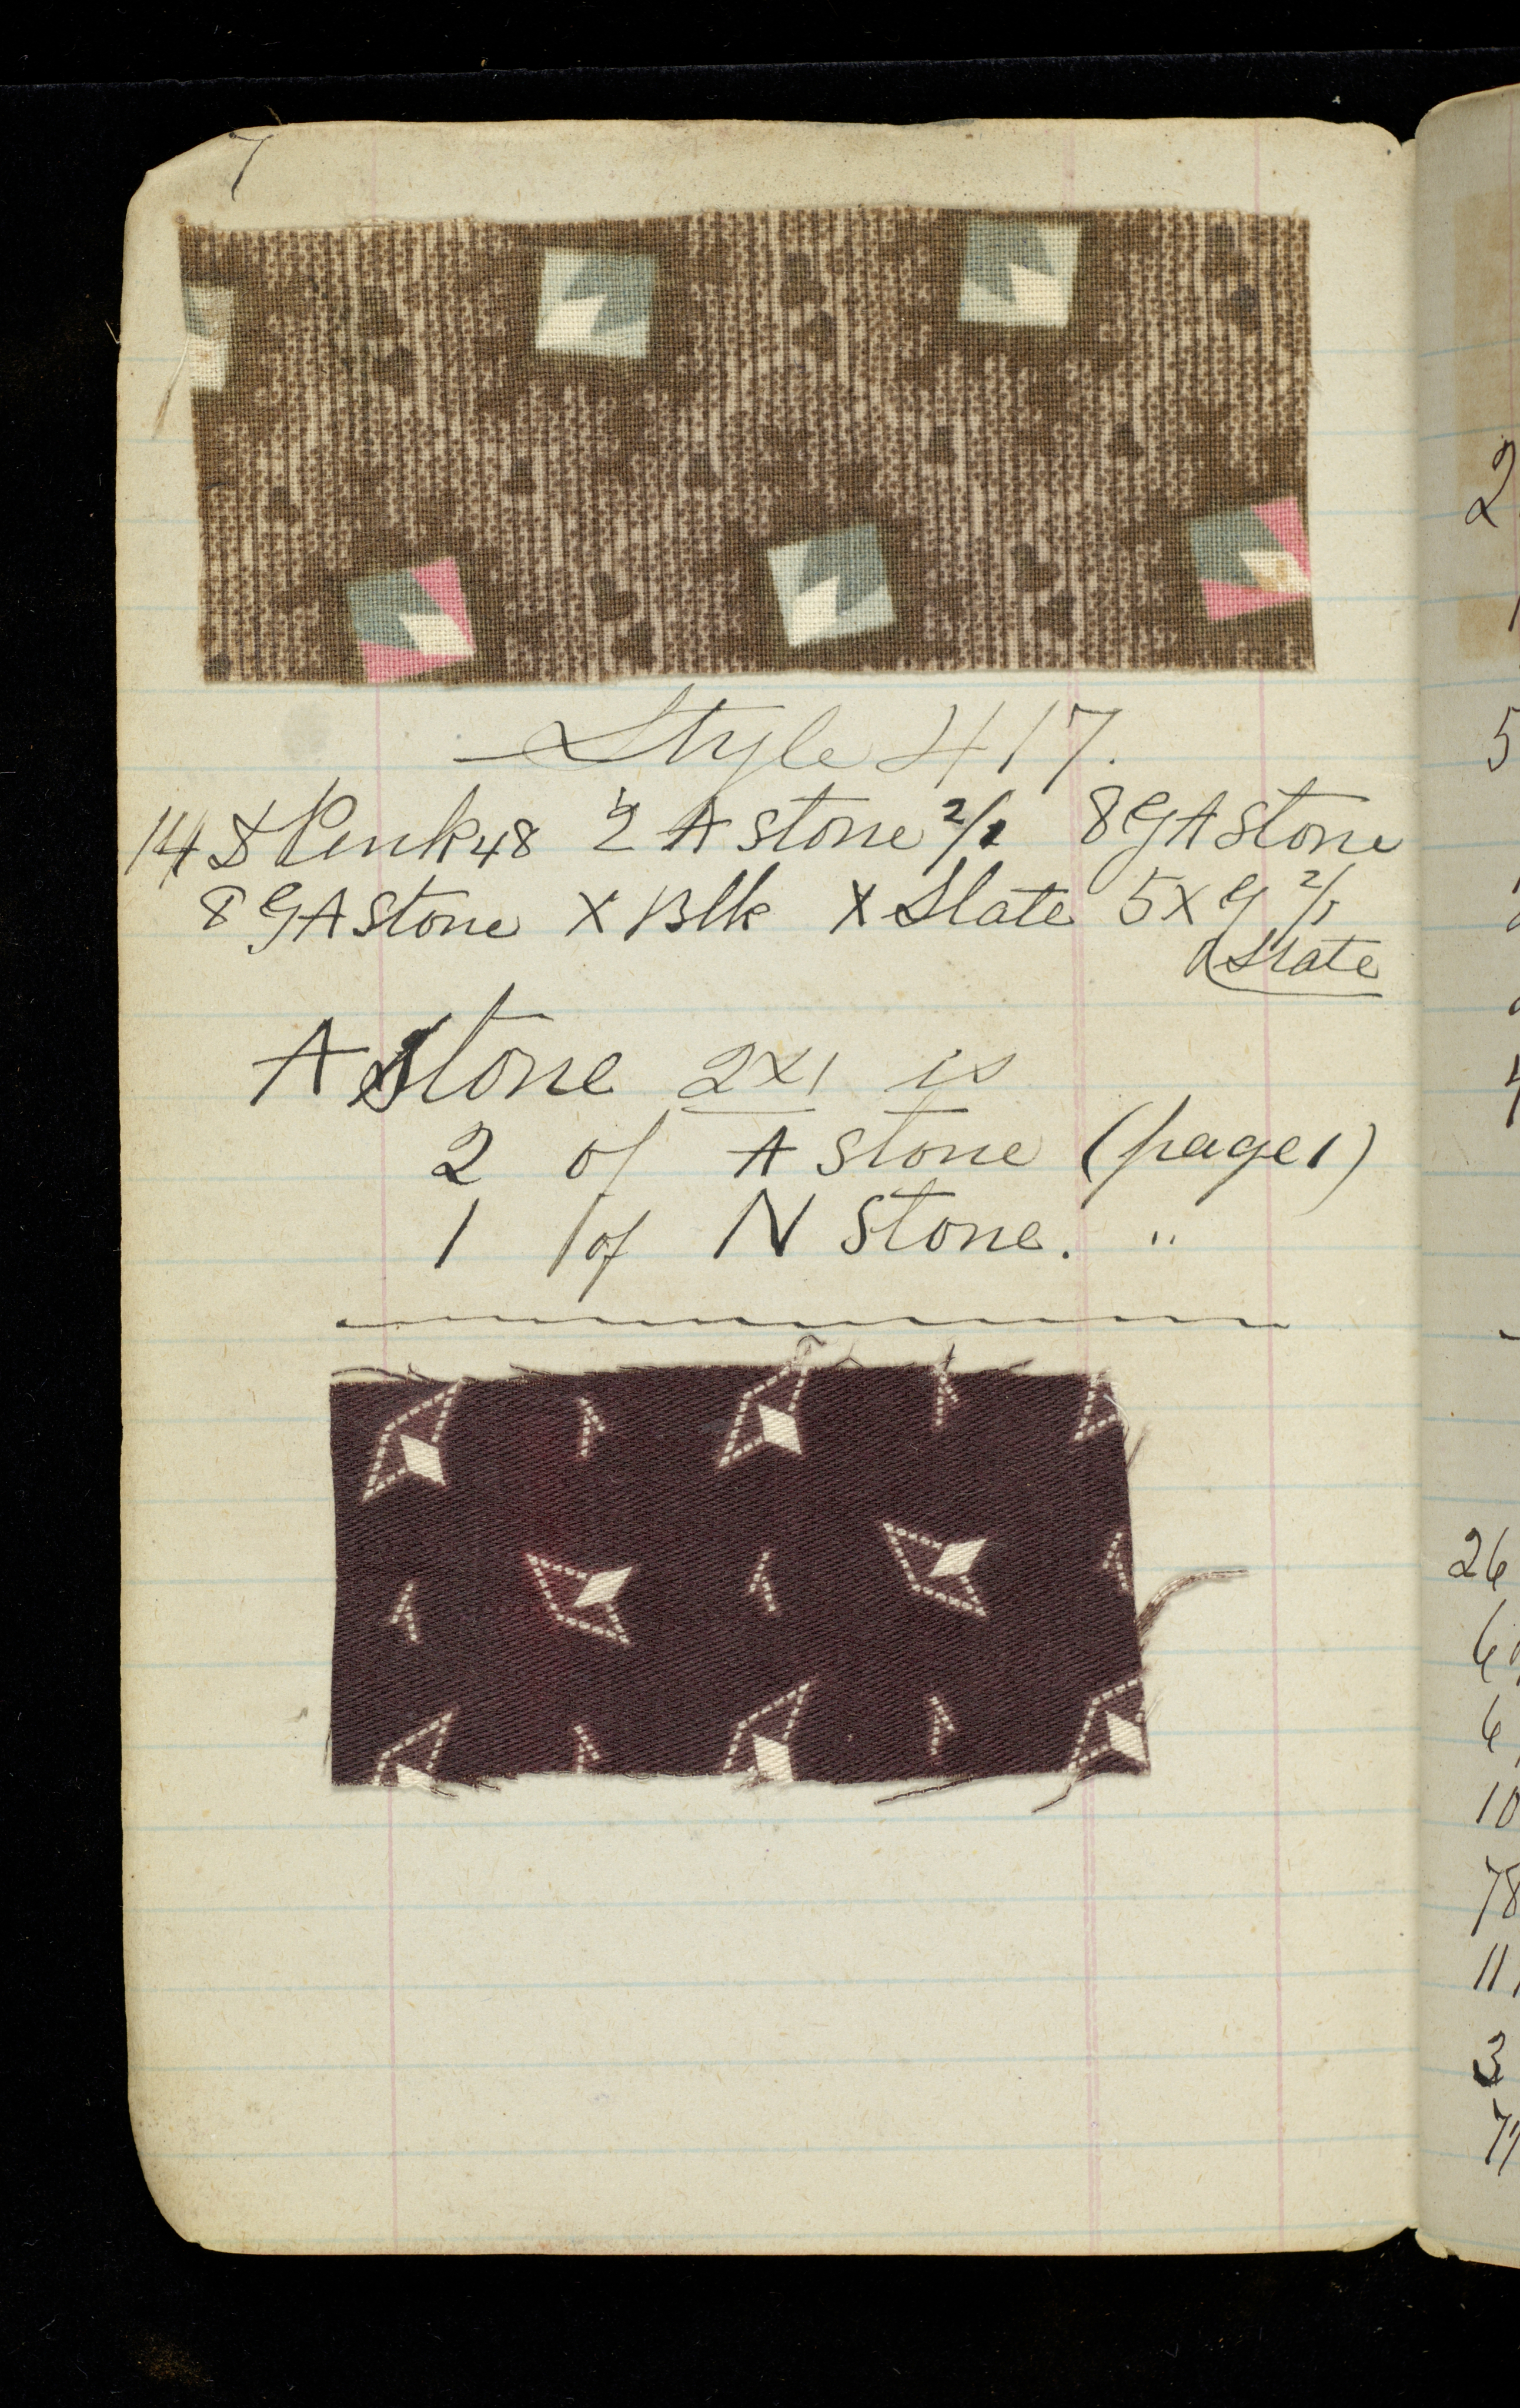 7
Style 417.
14 & Pink 48 2 A Stone 2/1 8 G A Stone
8 G A Stone X Blk X Slate 5 X G 2/1
Slate
A Stone 2x1 is
2 of A Stone (page 1)
1 of N Stone. "
2
5
26
6
6
10
78
11
3